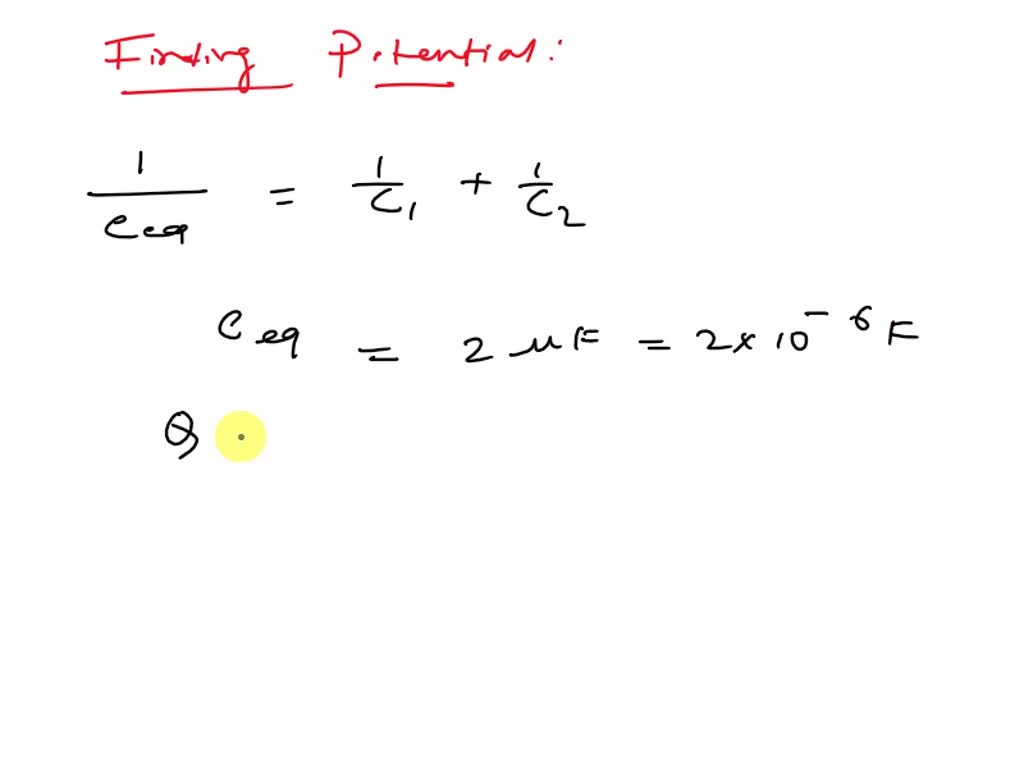 Finding Potential:
1/Ceq = 1/C1 + 1/C2
Ceq = 2 μF = 2×10⁻⁶ F
Q